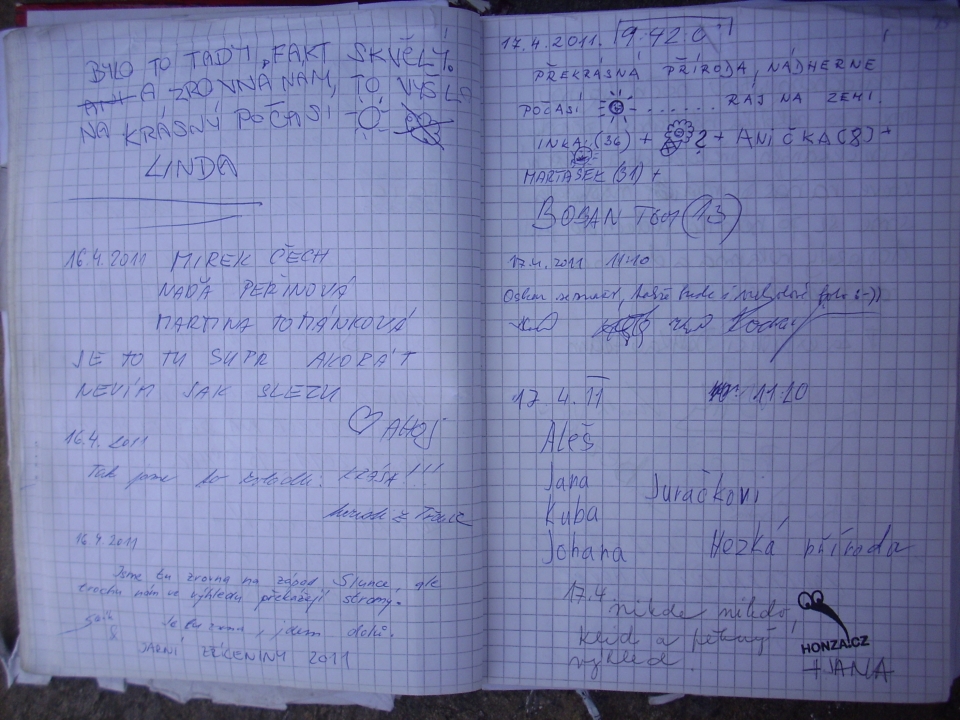 BYLO TO TADY, FAKT SKVĚLÝ.
A ZROVNA NAM, TO VYŠLO
NA KRÁSNÝ POČASÍ
LINDA
16.4.2011 MIREK ČECH
NAĎA PEŘINOVÁ
MARTINA TOMÁNKOVÁ
JE TO TU SUPR AKORÁT
NEVÍM JAK SLEZU
AHOJ
16.4. 2011
Tak jsme to zvládli. KRÁSA!!!
16.4 2011
Jsme tu zrovna na západ Slunce, ale
trochu nám ve výhledu překážejí stromy.
Je tu zima, jdem dolů.
JARNÍ 2011
17.4.2011. 9:42.0
PŘEKRÁSNÁ PŘÍRODA, NÁDHERNE
POČASÍ ....... RÁJ NA ZEMI.
INKA (36) + ? + ANIČKA (8) +
MARTÁSEK (31) +
BOBAN TOM (13)
17.4.2011 11:10
17.4.11 11:20
Aleš
Jana Juračkovi
Kuba
Johana Hezká příroda
17.4.
nikde nikdo,
klid a pěkný
výhled.
HONZA.CZ
+JANA